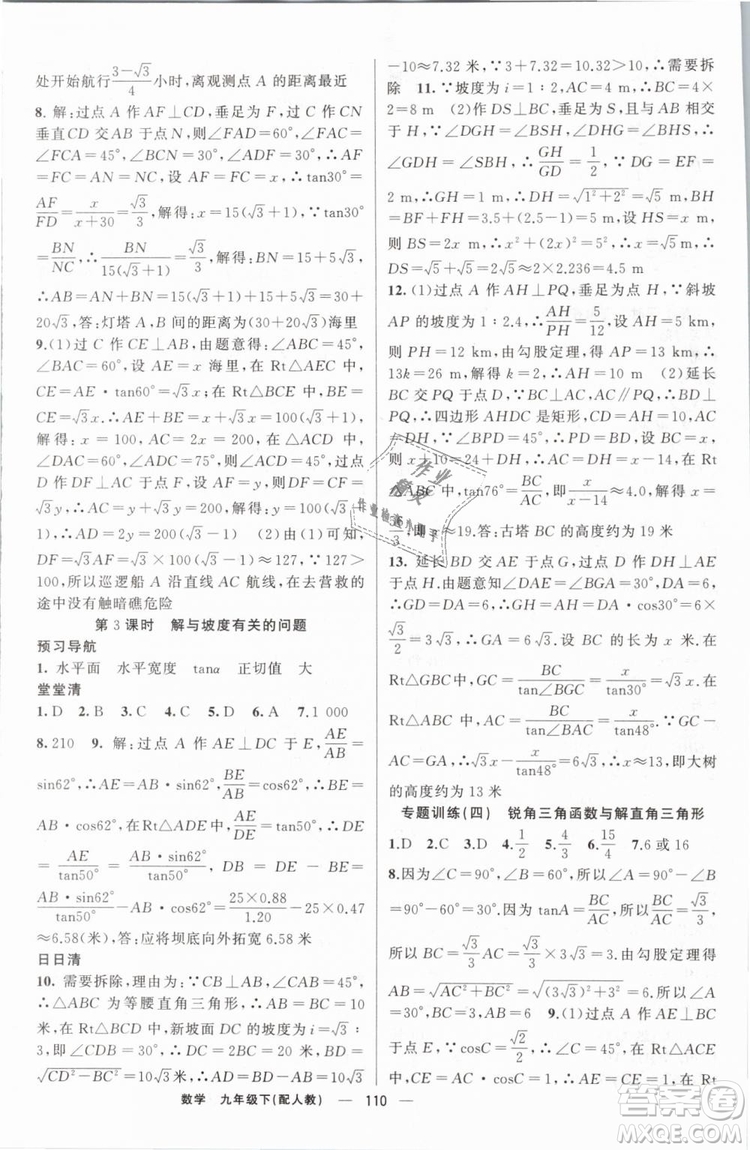 处开始航行(3−√3)/4小时,离观测点 A 的距离最近
8. 解:过点 A 作 AF⊥CD,垂足为 F,过 C 作 CN
垂直CD 交 AB 于点 N,则∠FAD=60°,∴∠FAC
=∠FCA=45°,∠BCN=30°,∠ADF=30°,∴AF
=FC=FN=NC,设 AF=FC=x,∴tan30°=
AF/FD=x/(x+30)=√3/3,解得:x=15(√3+1),∵tan30°
=BN/NC,∴BN/(15(√3+1))=√3/3,解得:BN=15+5√3,
∴AB=AN+BN=15(√3+1)×2+15+5√3=30+
20√3,答:灯塔 A,B 间的距离为(30+20√3)海里
9.(1)过 C 作 CE⊥AB,由题意得:∠ABC=45°,
∠BAC=60°,设 AE=x 海里,在Rt△AEC 中,
CE=AE·tan60°=√3x;在Rt△BCE 中,BE=
CE=√3x.∴AE+BE=x+√3x=100(√3+1),解
得:x=100.AC=2x=200.在△ACD 中,
∠DAC=60°,∠ADC=75°,则∠ACD=45°.过点
D 作 DF⊥AC 于点 F,设 AF=y,则 DF=CF=
√3y,∴AC=y+√3y=200,解得:y=100(√3−1),
∴AD=2y=200(√3−1) (2)由(1)可知,
DF=√3AF=√3×100(√3−1)≈127,∵127>
100,所以巡逻船 A 沿直线 AC 航线,在去营救的
途中没有触暗礁危险
第 3 课时 解与坡度有关的问题
预习导航
1. 水平面 水平宽度 tanα 正切值 大
堂堂清
1. D 2. B 3. C 4. D 5. C 6. A 7. 1 000
8. 210 9. 解:过点 A 作 AE⊥DC 于 E,AE/AB=
sin62°,∴AE=AB·sin62°,∵BE/AB=cos62°,∴BE
=AB·cos62°,在Rt△ADE 中,AE/DE=tan50°,DE
=AE/tan50°=AB·sin62°/tan50°,∴DB=DE−BE=
AB·sin62°/tan50°−AB·cos62°=25×0.88/1.20−25×0.47
≈6.58(米),答:应将坝底向外拓宽 6.58 米
日日清
10. 需要拆除,理由为:∵CB⊥AB,∠CAB=45°,
∴△ABC 为等腰直角三角形,∴AB=BC=10
米,在Rt△BCD 中,新坡面 DC 的坡度为 i=1∶
√3,即∠CDB=30°,∴DC=2BC=20 米,BD=
√(CD²−BC²)=10√3米,∴AD=BD−AB=10√3
−10≈7.32 米,∵3+7.32=10.32>10,∴需要拆
除 11. (1)∵坡度为 i=1∶2,AC=4 m,∴BC=4×
2=8 m (2)作 DS⊥BC,垂足为 S,且与 AB 相交
于 H,∵∠DGH=∠BSH,∠DHG=∠BHS,
∴∠GDH=∠SBH,∴GH/GD=1/2,∵DG=EF=
2 m,∴GH=1 m,∴DH=√(1²+2²)=√5 m,
BH=BF+FH=3.5+(2.5−1)=5 m,设 HS=x m,
则 BS=2x m,∴x²+(2x)²=5²,∴x=√5 m,∴
DS=√5+√5=2√5≈2×2.236≈4.5 m
12. (1)过点 A 作 AH⊥PQ,垂足为 H,∵斜坡
AP 的坡度为 1∶2.4,∴AH/PH=5/12,设 AH=5k km,
则 PH=12k km,由勾股定理,得 AP=13k km,∴
13k=26 m,解得 k=2,∴AH=10 m (2)延长
BC 交 PQ 于点 D,∵BC⊥AC,AC∥PQ,∴BD
⊥PQ,∴四边形 AHDC 是矩形,CD=AH=10,
AC=DH,∵∠BPD=45°,∴PD=BD,设 BC=x,
则 x+10=24+DH,∴AC=DH=x−14,在 Rt
△ABC 中,tan76°=BC/AC,即x/(x−14)≈4.01,解得 x
≈19,答:古塔 BC 的高度约为 19 米
13. 延长 BC 交 AE 于点 G,则∠AGB=∠DAE,
由题意知∠DAE=∠BGA=30°,DA=6,∴GD=
DA=6,∴GH=AH=DA·cos30°=6×
√3/2=3√3,∴GA=6√3,设 BC 的长为 x 米,在
Rt△GBC 中,GC=BC/tan∠BGC=BC/tan30°=√3x,在
Rt△ABC 中,AC=BC/tan∠BAC=x/tan48°,∵GC
−AC=GA,∴√3x−x/tan48°=6√3,x≈13,即大树
的高度约为 13 米
专题训练(四) 锐角三角函数与解直角三角形
1. D 2. C 3. D 4. 1/2 5. 4/3 6. 4/15 7. 6 或 16
8. 因为∠C=90°,∠B=60°,所以∠A=90°−60°
=30°,因为∠C=90°,所以 tanA=BC/AC,所以√3/3=
BC/(3√3),所以 BC=3√3×√3/3=3,由勾股定理得
AB=√(AC²+BC²)=√((3√3)²+3²)=6,所以∠A
=30°,BC=3,AB=6 9. (1)过点 A 作 AE⊥BC
于点 E,∵cosC=√2/2,∴∠C=45°,在Rt△ACE
中,CE=AC·cosC=1,∴AE=CE=1,在
数学 九年级下(配人教) — 110 —